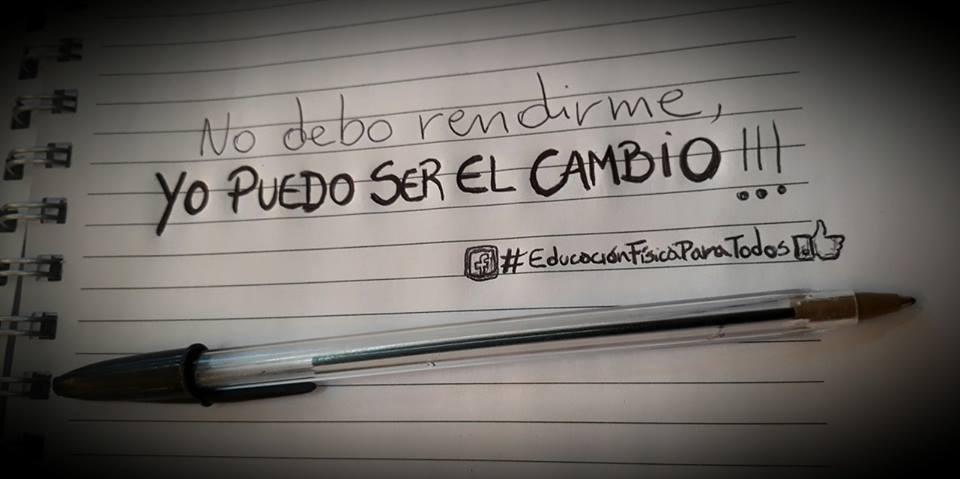 No debo rendirme,
YO PUEDO SER EL CAMBIO !!!
#EducaciónFísicaParaTodos